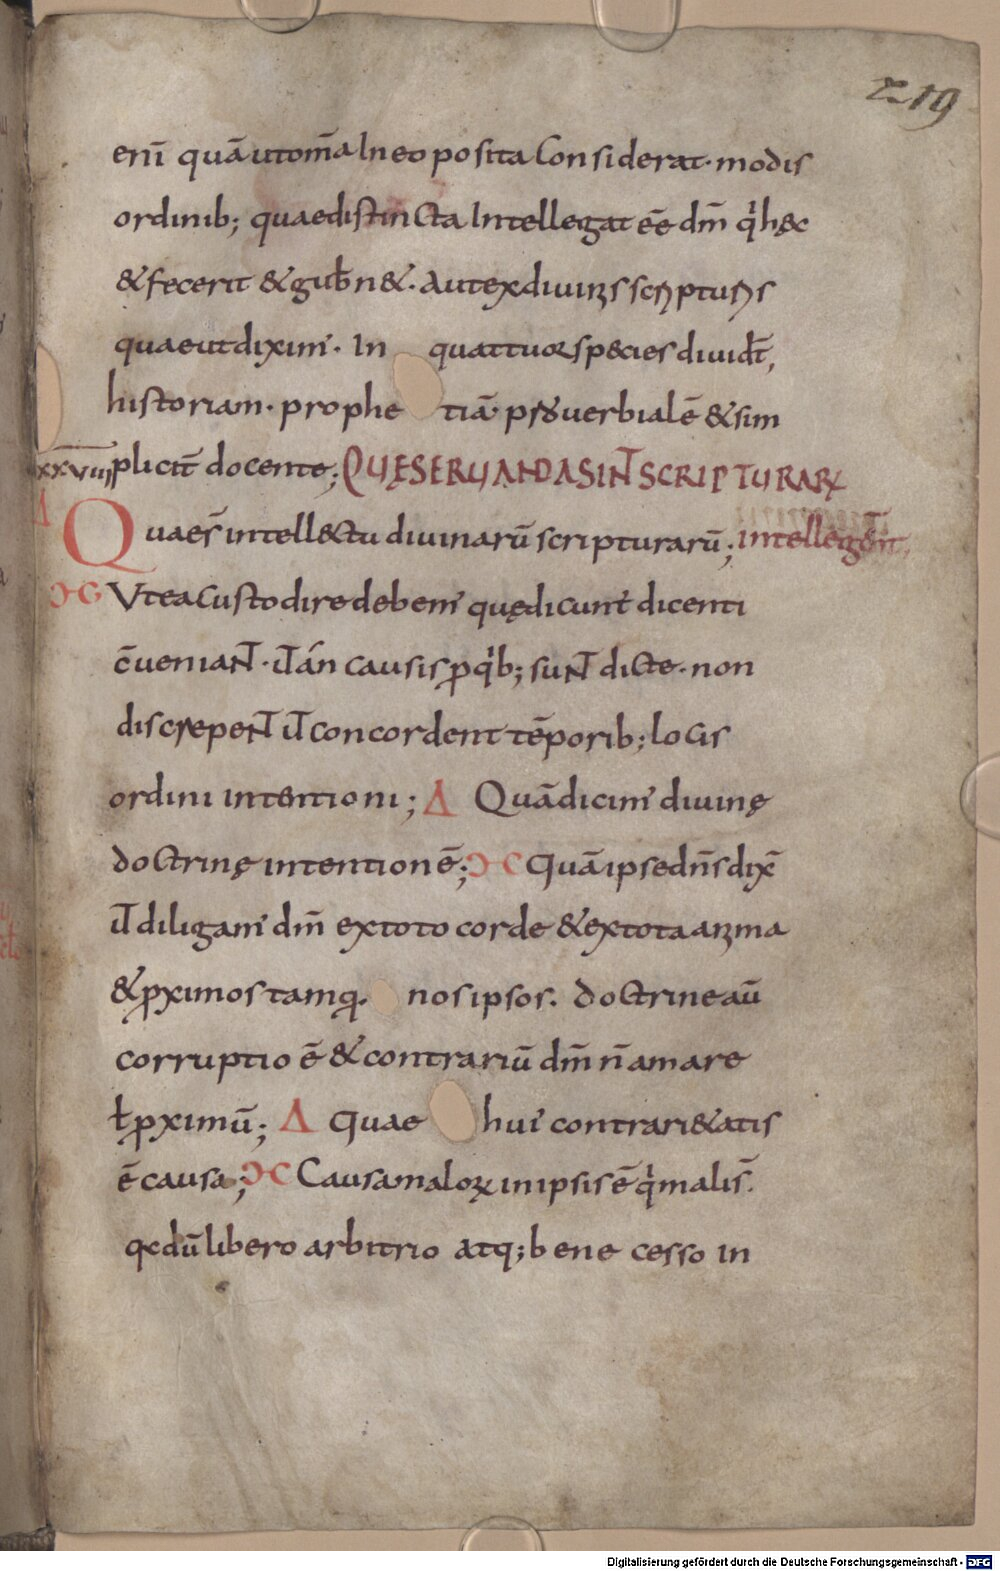 219
enī quā utom̄a In eo posita Considerat · modis
ordinib; quae distincta Intellegat ēē dm̄ qͥ hęc
& fecerit & gub̄n& · Aut ex diuinis scripturis
quae ut diximꝰ · In quattuor species diuid̄t,
historiam · prophetiā · prouerbialē & sim
xxviiii plicit̄ docente; QUĘ SERUANDA SINT̄ SCRIPTURARꝜ
Quaes̄ intell&tu diuinarū scripturarū; intellegēn̄t,
ↃC Vt ea Custodire debemꝰ quę dicunt̄ dicenti
c̄ueniaNT · ūT án causis ꝓ qͥb; suNT dicte · non
discrepeNT ūT concordent tēporib; locis
ordini intentioni; Δ Quā dicimꝰ diuinę
doctrinę intentionē; ↃC Quā ipse dn̄s dix̄
ūT diligamꝰ dm̄ ex toto corde & ex tota anima
& ꝓximos tamq̄· nos ipsos. doctrine aū
corruptio ē & contrariū dm̄ n̄ amare
ł ꝓximū; Δ Quae huiꝰ contrari&atis
ē causa; ↃC Causa maloꝝ in ipsis ē qͥ malis̄.
qd dū libero arbitrio atq; bene cesso in
Digitalisierung gefördert durch die Deutsche Forschungsgemeinschaft - DFG